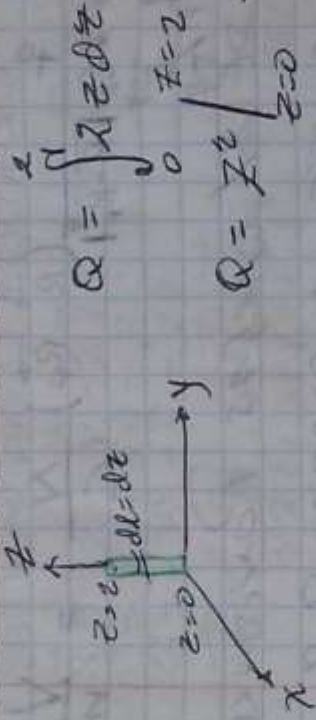 Z
Z=2
dl=dz
Z=0
y
x
Q = ∫₀² 2zdz
Q = Z² |
Z=2
Z=0